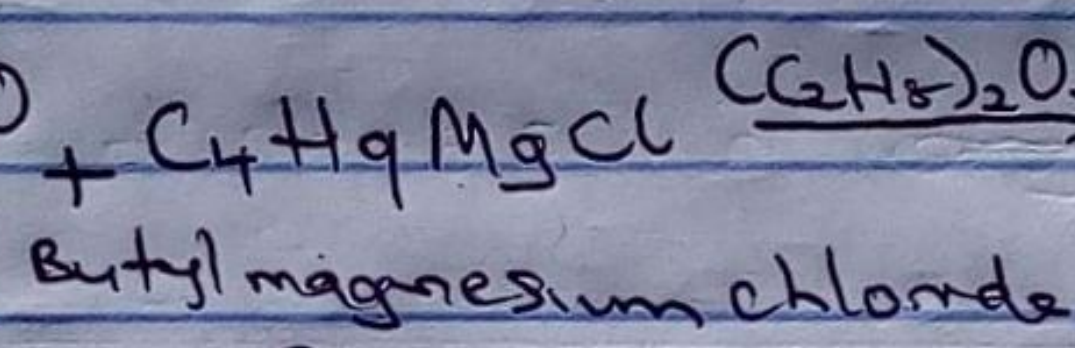 + C₄H₉MgCl (C₂H₅)₂O
Butyl magnesium chloride